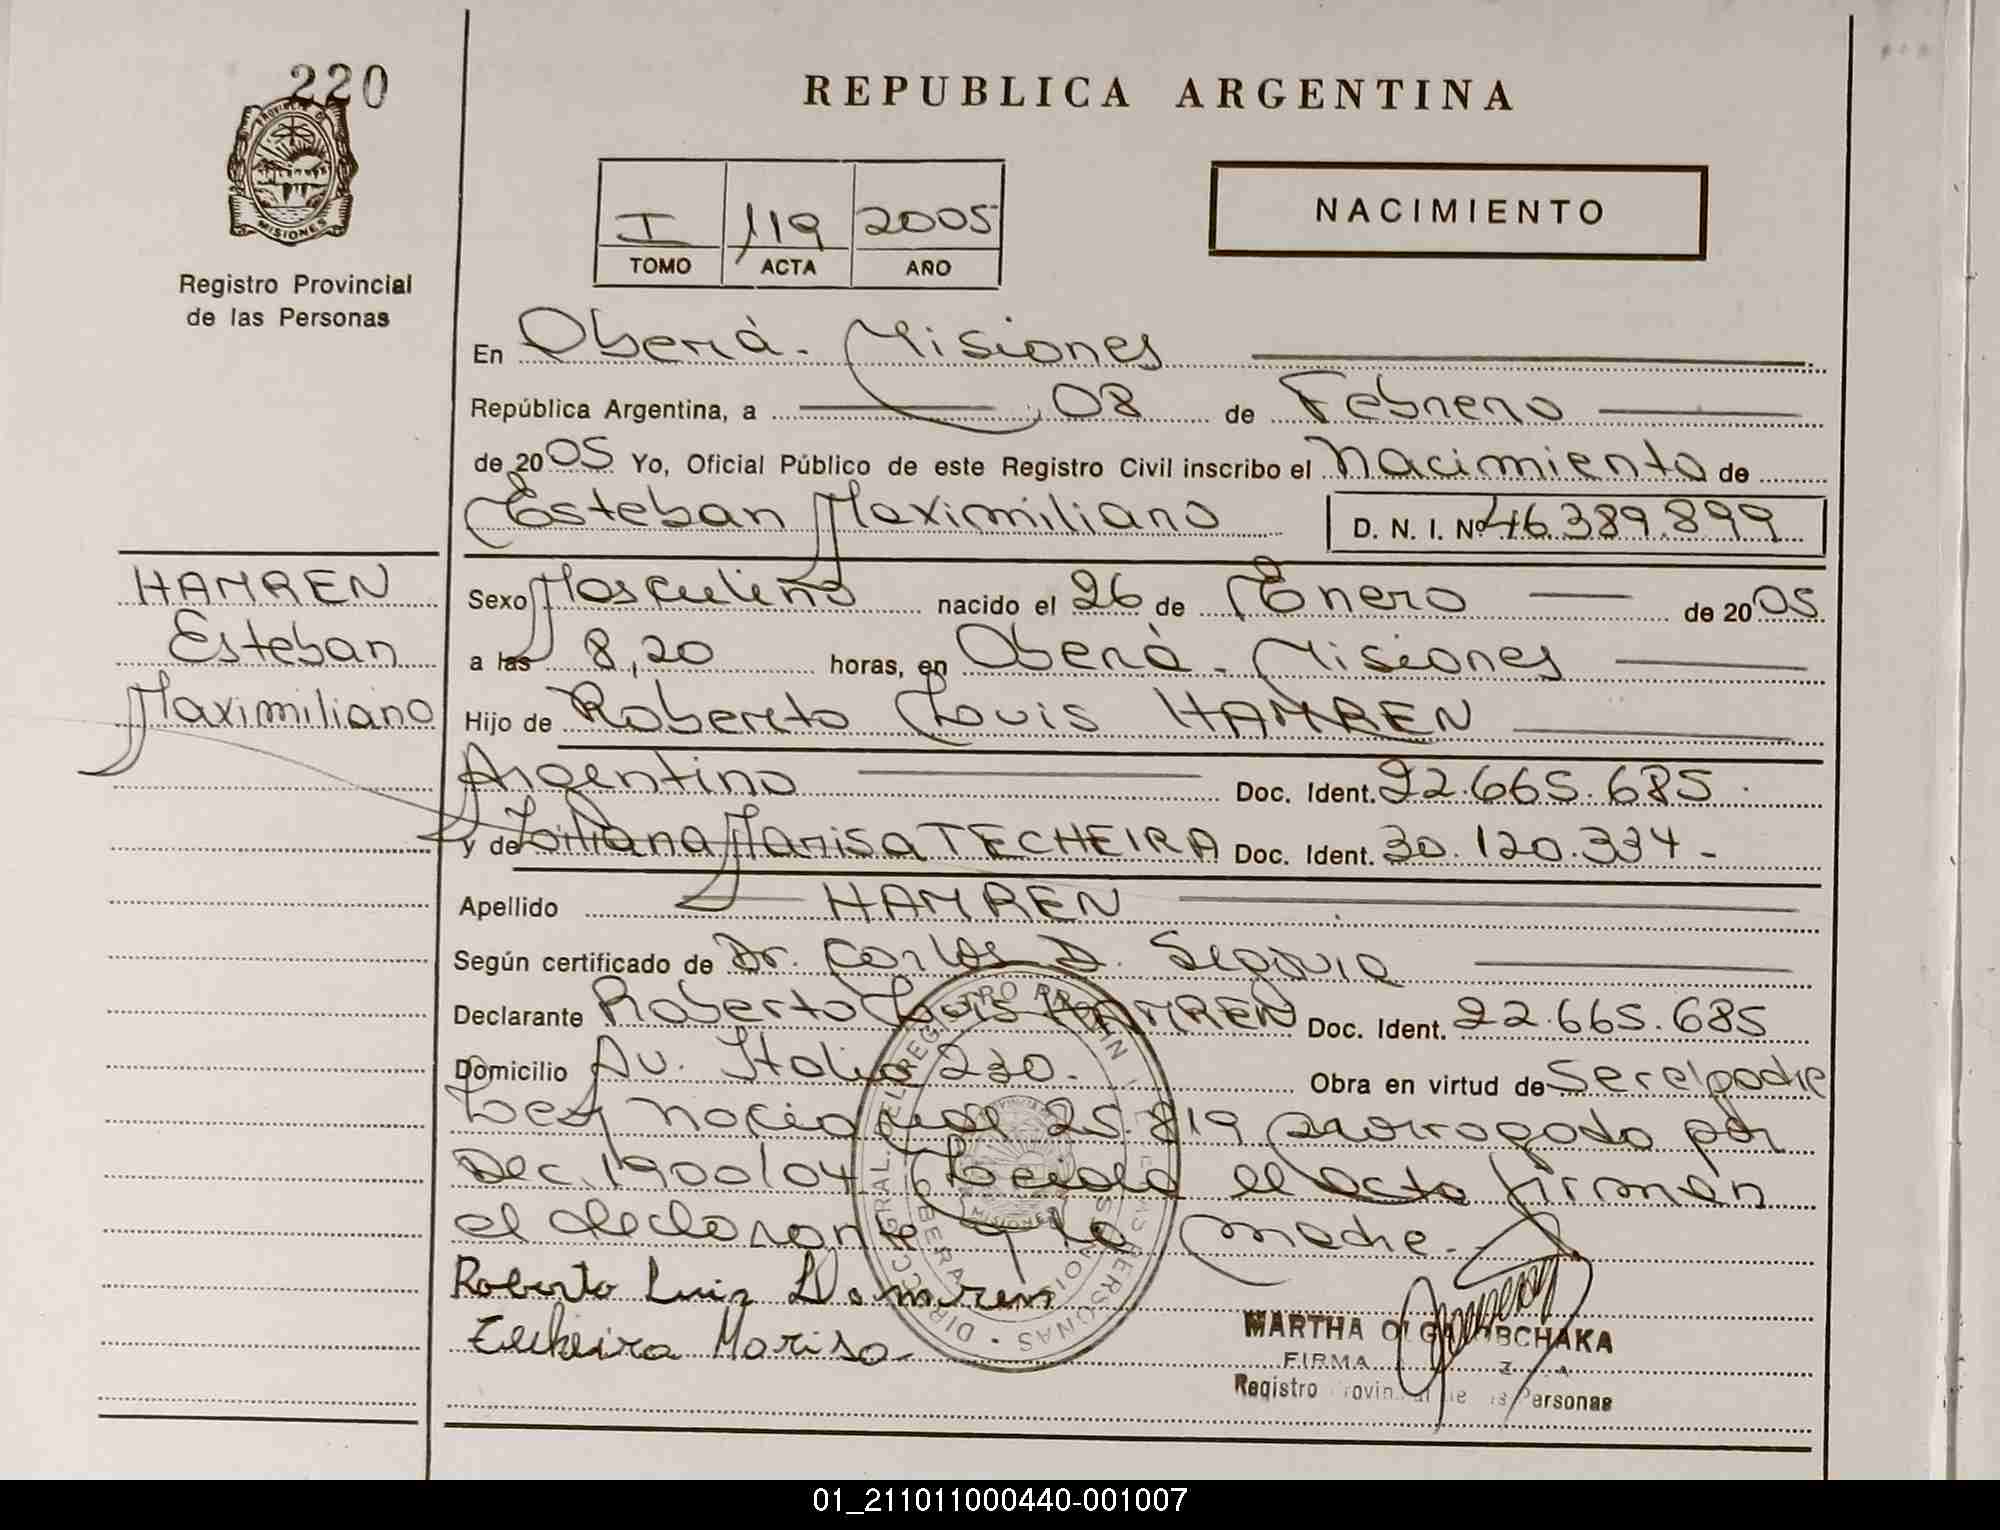 220
PROVINCIA DE
MISIONES
Registro Provincial
de las Personas
REPUBLICA ARGENTINA
I 119 2005
TOMO ACTA AÑO
NACIMIENTO
En Oberá - Misiones
República Argentina, a 08 de Febrero
de 2005 Yo, Oficial Público de este Registro Civil inscribo el Nacimiento de
Esteban Maximiliano D. N. I. Nº 46.389.899
HAMREN
Esteban
Maximiliano
Sexo Masculino nacido el 26 de Enero de 2005
a las 8,20 horas, en Oberá - Misiones
Hijo de Roberto Louis HAMREN
Argentino Doc. Ident. 22.665.685
y de Liliana Marisa TECHEIRA Doc. Ident. 30.120.334 -
Apellido HAMREN
Según certificado de Dr. Carlos D. Segovia
Declarante Roberto Louis HAMREN Doc. Ident. 22.665.685
Domicilio Av. Italia 230. Obra en virtud de Ser el padre
Ley Nacional 25.819 prorrogado por
Dec. 1900/04 Leida el acta firman
el declarante y la madre.
Roberto Luiz Hamren
Techeira Marisa
MARTHA OLGA
FIRMA
Registro Provincial de las Personas
01_211011000440-001007